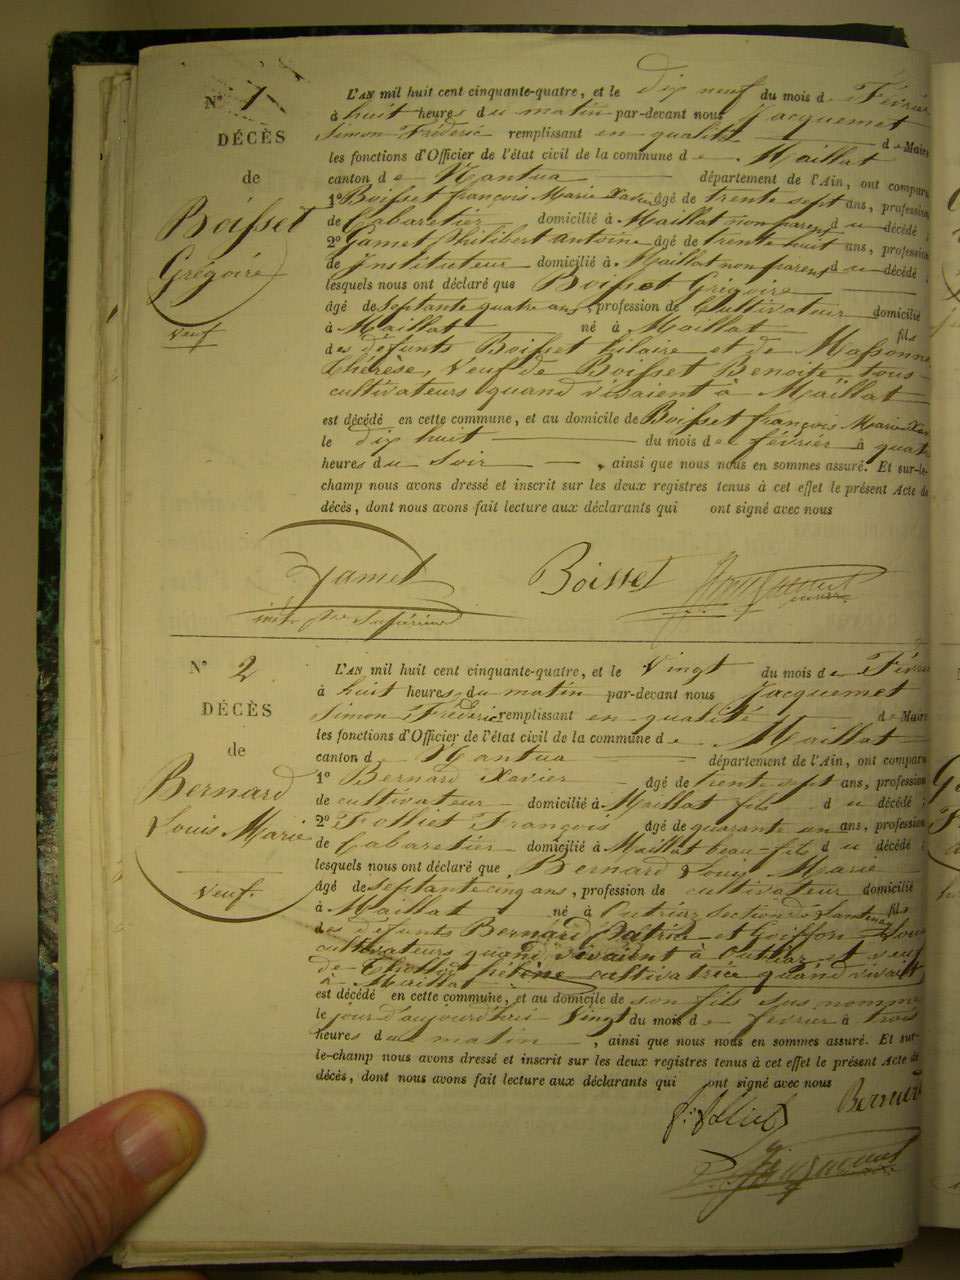 N° 1
DÉCÈS
de
Boisset
Grégoire
Veuf
L'AN mil huit cent cinquante-quatre, et le dix neuf du mois de Février
à huit heures du matin par-devant nous Jacquemet
Simon Frédéric remplissant en qualité de Maire
les fonctions d'Officier de l'état civil de la commune de Maillat
canton de Nantua département de l'Ain, ont comparu
1° Boisset françois Marie Xavier âgé de trente sept ans, profession
de Cabaretier domicilié à Maillat non parent du décédé ;
2° Gamet Philibert Antoine âgé de trente huit ans, profession
de Instituteur domicilié à Maillat non parent du décédé ;
lesquels nous ont déclaré que Boisset Grégoire
âgé de septante quatre ans, profession de Cultivateur domicilié
à Maillat né à Maillat fils
des défunts Boisset hilaire et de Massonne
thérèse, Veuf de Boisset Benoite tous
cultivateurs quand vivaient à Maillat
est décédé en cette commune, et au domicile de Boisset françois Marie Xav
le dix huit du mois de février à quatre
heures du soir, ainsi que nous nous en sommes assuré. Et sur-le-
champ nous avons dressé et inscrit sur les deux registres tenus à cet effet le présent Acte de
décès, dont nous avons fait lecture aux déclarants qui ont signé avec nous
Gamet Boisset
supérieur
N° 2
DÉCÈS
de
Bernard
Louis Marie
Veuf
L'AN mil huit cent cinquante-quatre, et le Vingt du mois de Févr
à huit heures du matin par-devant nous Jacquemet
Simon Frédéric remplissant en qualité de Maire
les fonctions d'Officier de l'état civil de la commune de Maillat
canton de Nantua département de l'Ain, ont comparu
1° Bernard Xavier âgé de trente sept ans, profession
de cultivateur domicilié à Maillat fils du décédé ;
2° Folliet François âgé de quarante un ans, profession
de Cabaretier domicilié à Maillat beau-fils du décédé ;
lesquels nous ont déclaré que Bernard Louis Marie
âgé de septante cinq ans, profession de cultivateur domicilié
à Maillat né à Outriaz section de fils
des défunts Bernard Patrice et Goiffon
cultivateurs quand vivaient à Outriaz et veuf
de hélène cultivatrice quand vivait
à Maillat
est décédé en cette commune, et au domicile de son fils sus nommé
le jour d'aujourd'hui Vingt du mois de février à trois
heures du matin, ainsi que nous nous en sommes assuré. Et sur-
le-champ nous avons dressé et inscrit sur les deux registres tenus à cet effet le présent Acte de
décès, dont nous avons fait lecture aux déclarants qui ont signé avec nous
f. folliet Bernard